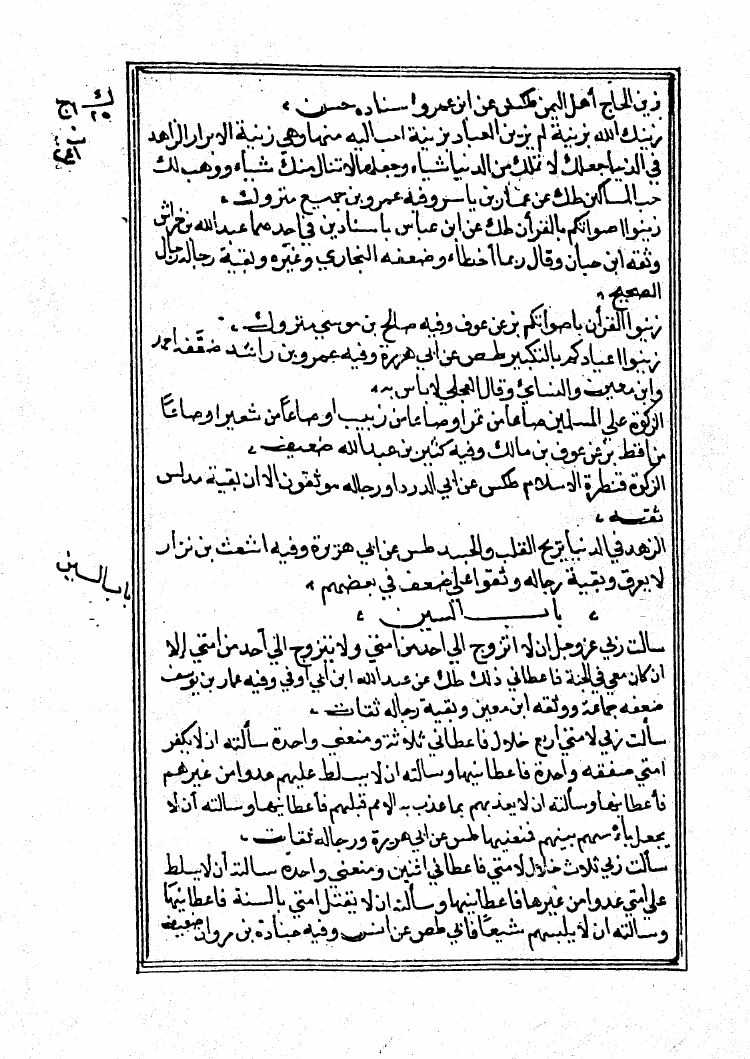 زين الحاج أهل اليمن طكس عن ابن عمرو اسناده حسن
زينك الله بزينة لم يزين العباد بزينة احب اليه منها وهي زينة الابرار الزاهد
في الدنيا جعلك لا تملك من الدنيا شياء وجعلها لا تنال منك شياء ووهب لك
حب المساكين طك عن عمار بن ياسر وفيه عمرو بن جميع متروك
زينوا اصواتكم بالقرأن طك عن ابن عباس باسنادين في احدهما عبد الله بن خراش
وثقه ابن حبان وقال ربما أخطاء وضعفه البخاري وغيره وبقية رجاله رجال
الصحيح
زينوا القرأن باصواتكم بز عن عوف وفيه صالح بن موسي متروك
زينوا اعيادكم بالتكبير طصط عن ابي هريرة وفيه عمرو بن راشد ضعفه احمد
وابن معين والنساي وقال العجلي لا باس به
الزكوة علي المسلمين صاعا من تمر او صاعا من زبيب او صاعاً من شعير او صاعاً
من اقط بز عن عوف بن مالك وفيه كثير بن عبد الله ضعيف
الزكوة قنطرة الاسلام طكس عن ابي الدرداء ورجاله موثقون الا ان بقية مدلس
ثقه
الزهد في الدنيا يريح القلب والجسد طس عن ابي هريرة وفيه اشعث بن نزار
لا يعرف وبقية رجاله وثقوا علي ضعف في بعضهم
باب السين
سالت ربي عز وجل ان لا اتزوج الي احد من امتي ولا يتزوج الي أحد من امتي إلا
ان كان معي في الجنة فاعطاني ذلك طك عن عبد الله ابن ابي أوفي وفيه عمار بن يوسف
ضعفه جماعة ووثقه ابن معين وبقية رجاله ثقات
سألت ربي لامتي أربع خلال فاعطاني ثلاثة ومنعني واحدة سألته ان لا يكفر
امتي صفقه واحدة فاعطانيها وسالته ان لا يسلط عليهم عدوا من غيرهم
فأعطانيها وسألته ان لا يعذبهم بما عذب به الامم قبلهم فأعطانيها وسالته أن لا
يجعل باءسهم بينهم فمنعنيها طس عن ابي هريرة ورجاله ثقات
سألت ربي ثلاث خلال لامتي فاعطاني اثنين ومنعني واحدة سالته أن لا يسلط
علي امتي عدوا من غيرها فاعطانيها وسألته ان لا يقتل امتي بالسنة فاعطانيها
وسالته ان لا يلبسهم شيعاً فابي طص عن انس وفيه جنادة بن مروان ضعيف
باب السين